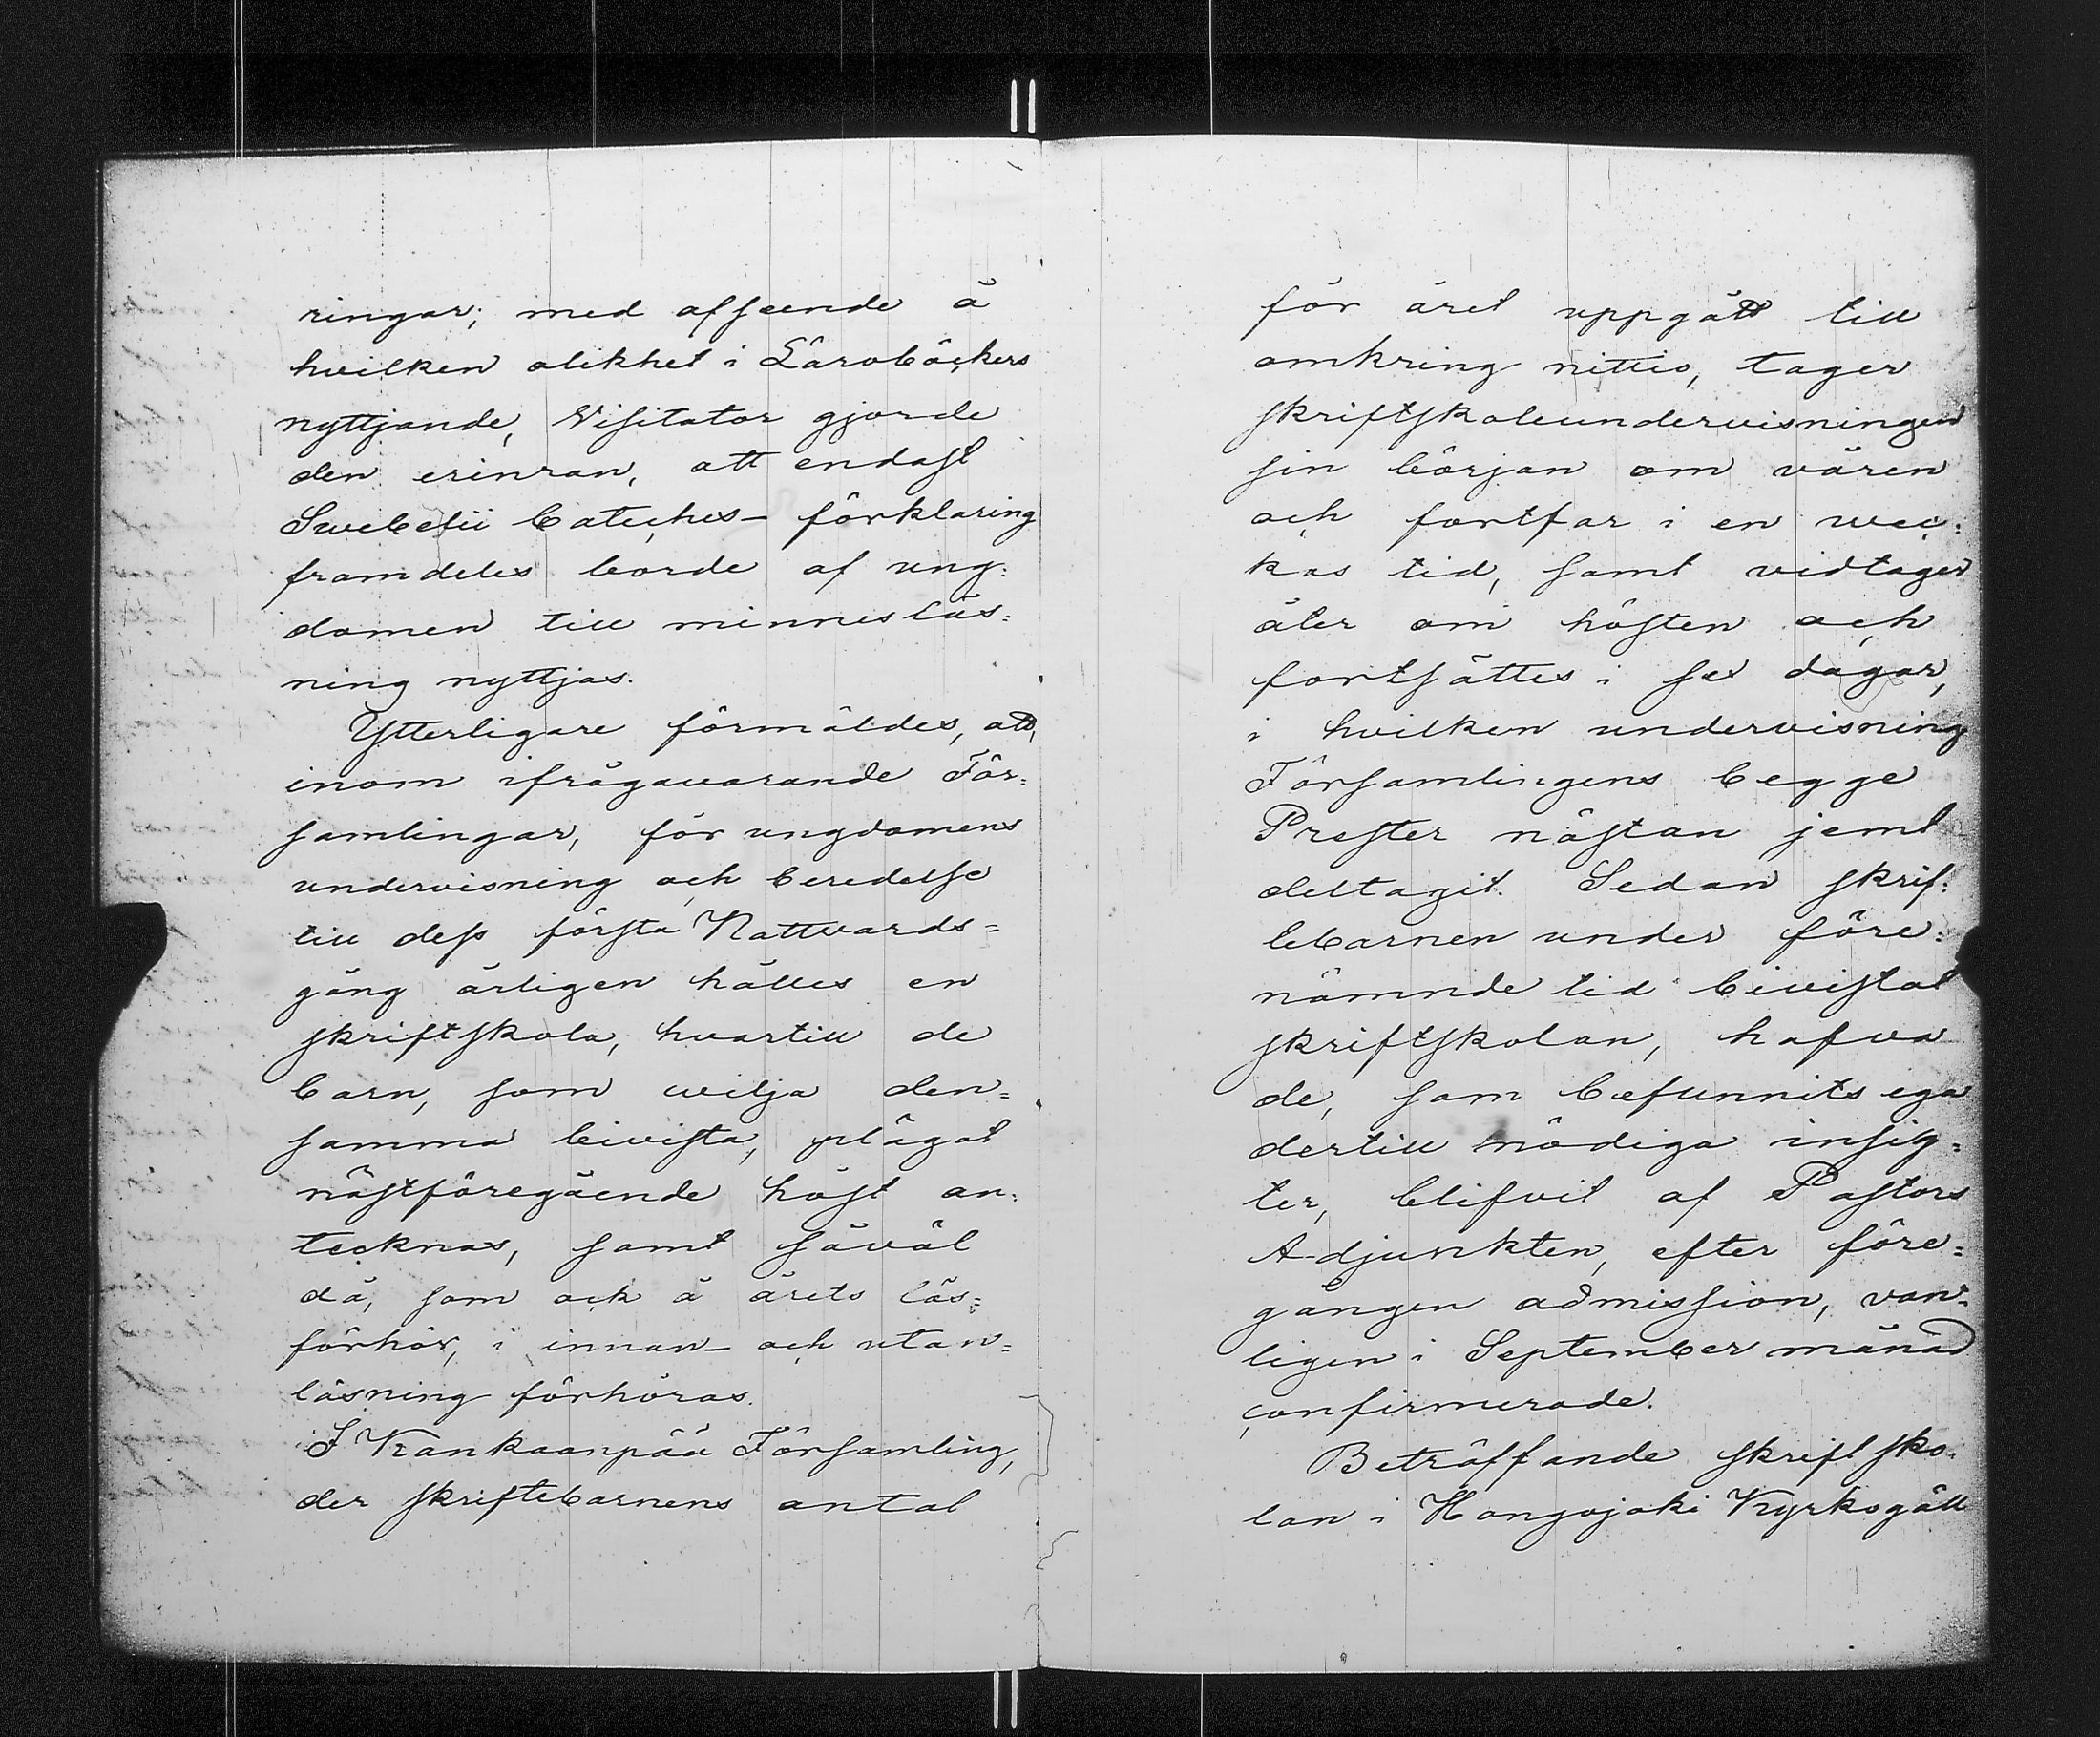 ringar; med afseende å
hvilken olikhet i Läroböckers
nyttjande, Visitator gjorde
den erinran, att endast
Swebelii Catechis- förklaring
framdeles borde af ung:
domen till minnesläs:
ning nyttjas.
Ytterligare förmäldes, att,
inom ifrågavarande För:
samlingar, för ungdomens
undervisning och beredelse
till dess första Nattvards=
gång årligen hålles en
skriftskola, hvartill de
barn, som wilja den=
samma bivista, plägat
nästföregående höst an:
tecknas, samt såväl
då, som ock å årets läs:
förhör, i innan- och utan=
läsning förhöras.
I Kankaanpää Församling,
der skriftebarnens antal
för året uppgått till
omkring nittio, tager
skriftskoleundervisningen
sin början om våren
och fortfar i en wec:
kas tid, samt vidtager
åter om hösten och
fortsättes i sex dagar,
i hvilken undervisning
Församlingens begge
Prester nästan jemt
deltagit. Sedan skrif:
tebarnen under före:
nämnde tid bivistat
skriftskolan, hafva
de, som befunnits ega
dertill nödiga insig:
ter, blifvit af Pastors
Adjunkten, efter före:
gången admission, van:
ligen i September månad
confirmerade.
Beträffande skriftsko:
lan i Hongojoki Kyrkogäll